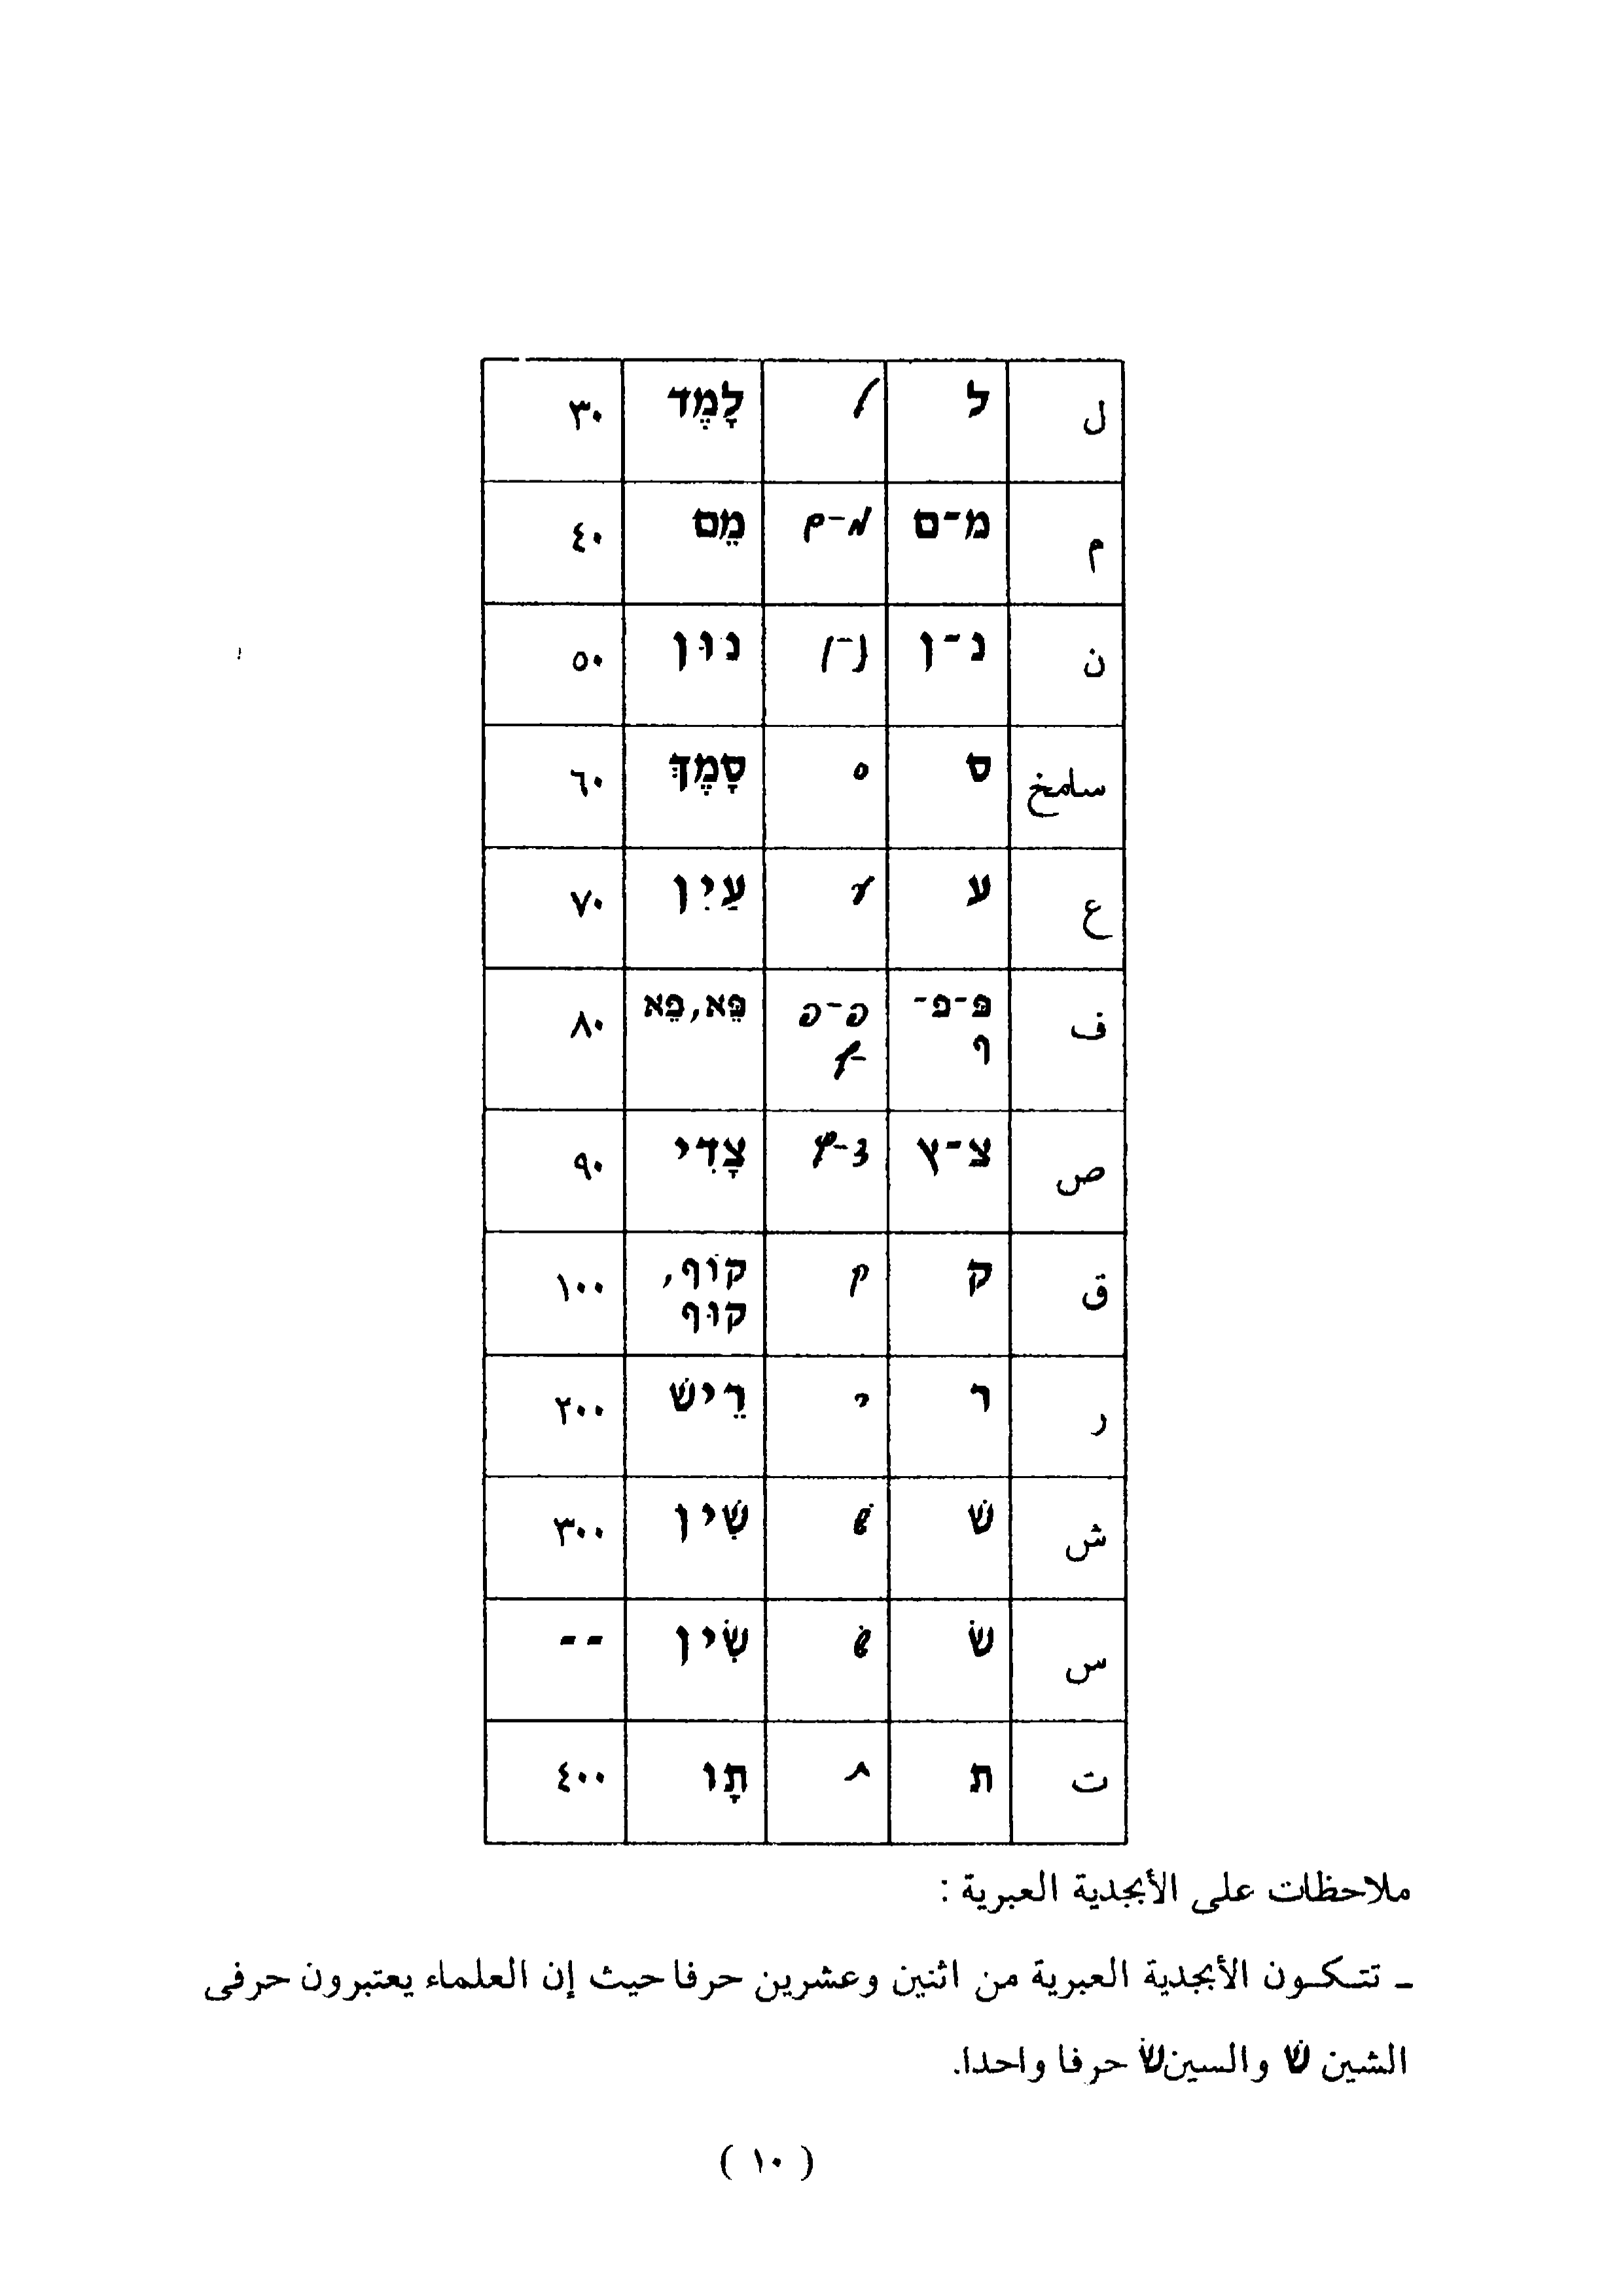 ل ל ל לָמֶד ٣٠
م מ-ם מ-ם מֵם ٤٠
ن נ-ן נ-ן נוּן ٥٠
سامخ ס ס סָמֶךְ ٦٠
ع ע ע עַיִן ٧٠
ف פּ-פ- פּ-פ פֵּא, פֵא ٨٠
ף -ף
ص צ-ץ צ-ץ צָדִי ٩٠
ق ק ק קוֹף, ١٠٠
קוּף
ر ר ר רֵישׁ ٢٠٠
ش שׁ שׁ שִׁין ٣٠٠
س שׂ שׂ שִׂין --
ت ת ת תָו ٤٠٠
ملاحظات على الأبجدية العبرية :
ـ تتـكـون الأبجدية العبرية من اثنين وعشرين حرفا حيث إن العلماء يعتبرون حرفى
الشين שׁ والسين שׂ حرفا واحدا.
( ١٠ )